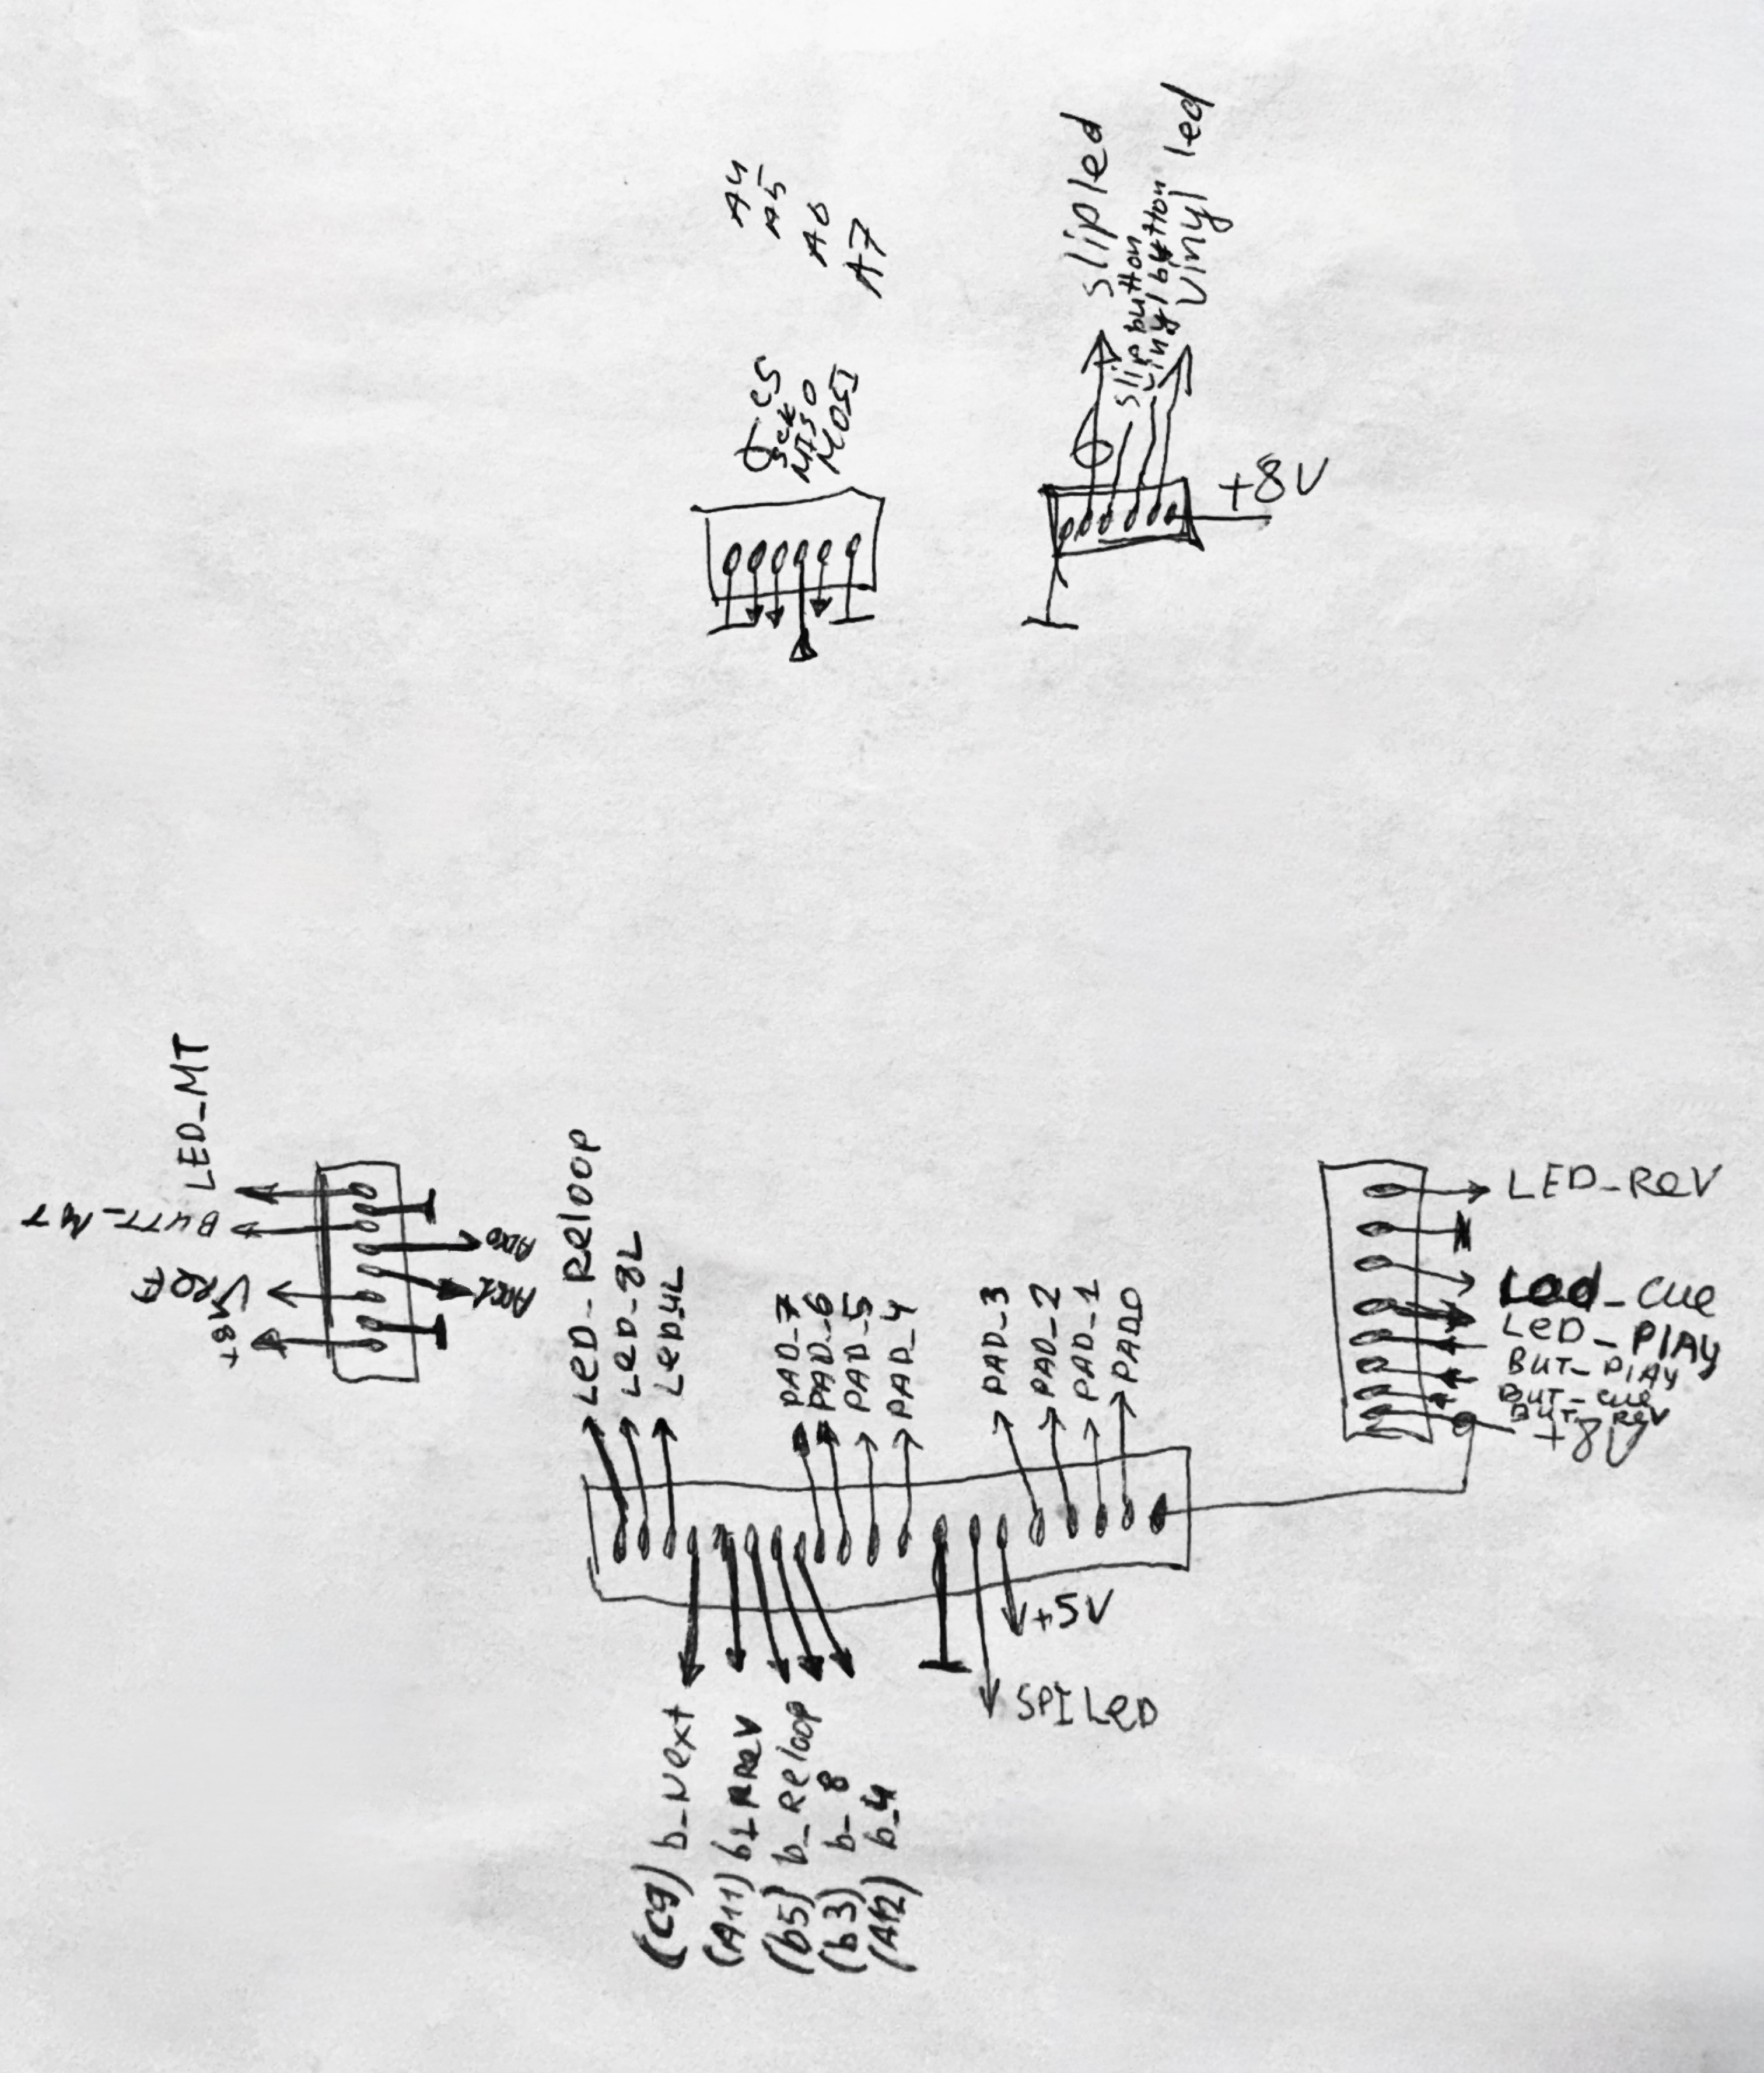 A4
A5
A6
A7
CS
SCK
MISO
MOSI
slip led
slip button
vinyl button
vinyl led
+8V
LED_MT
BUTT_MT
Vref
+8V
ADC0
ADC1
LED_Reloop
LeD_8L
LeD_4L
PAD_7
PAD_6
PAD_5
PAD_4
PAD_3
PAD_2
PAD_1
PAD0
LED_ReV
Led_cue
LeD_PlAy
BUT_PlAy
BUT_cue
BUT_ReV
+8V
+5V
SPI LeD
(C9) b_Next
(A11) b_PReV
(b5) b_Reloop
(b3) b_8
(A12) b_4